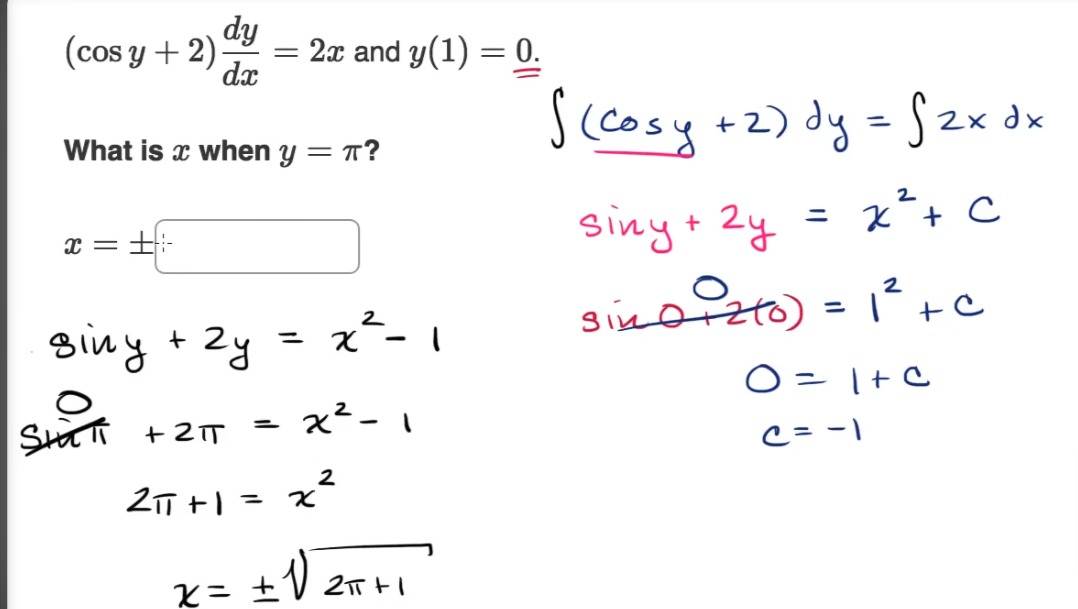 (cos y + 2) dy/dx = 2x and y(1) = 0.
What is x when y = π?
x = ±
∫ (cos y + 2) dy = ∫ 2x dx
sin y + 2y = x² + C
0
sin 0 + 2(0) = 1² + C
0 = 1 + C
C = -1
sin y + 2y = x² - 1
0
sin π + 2π = x² - 1
2π + 1 = x²
x = ±√(2π + 1)